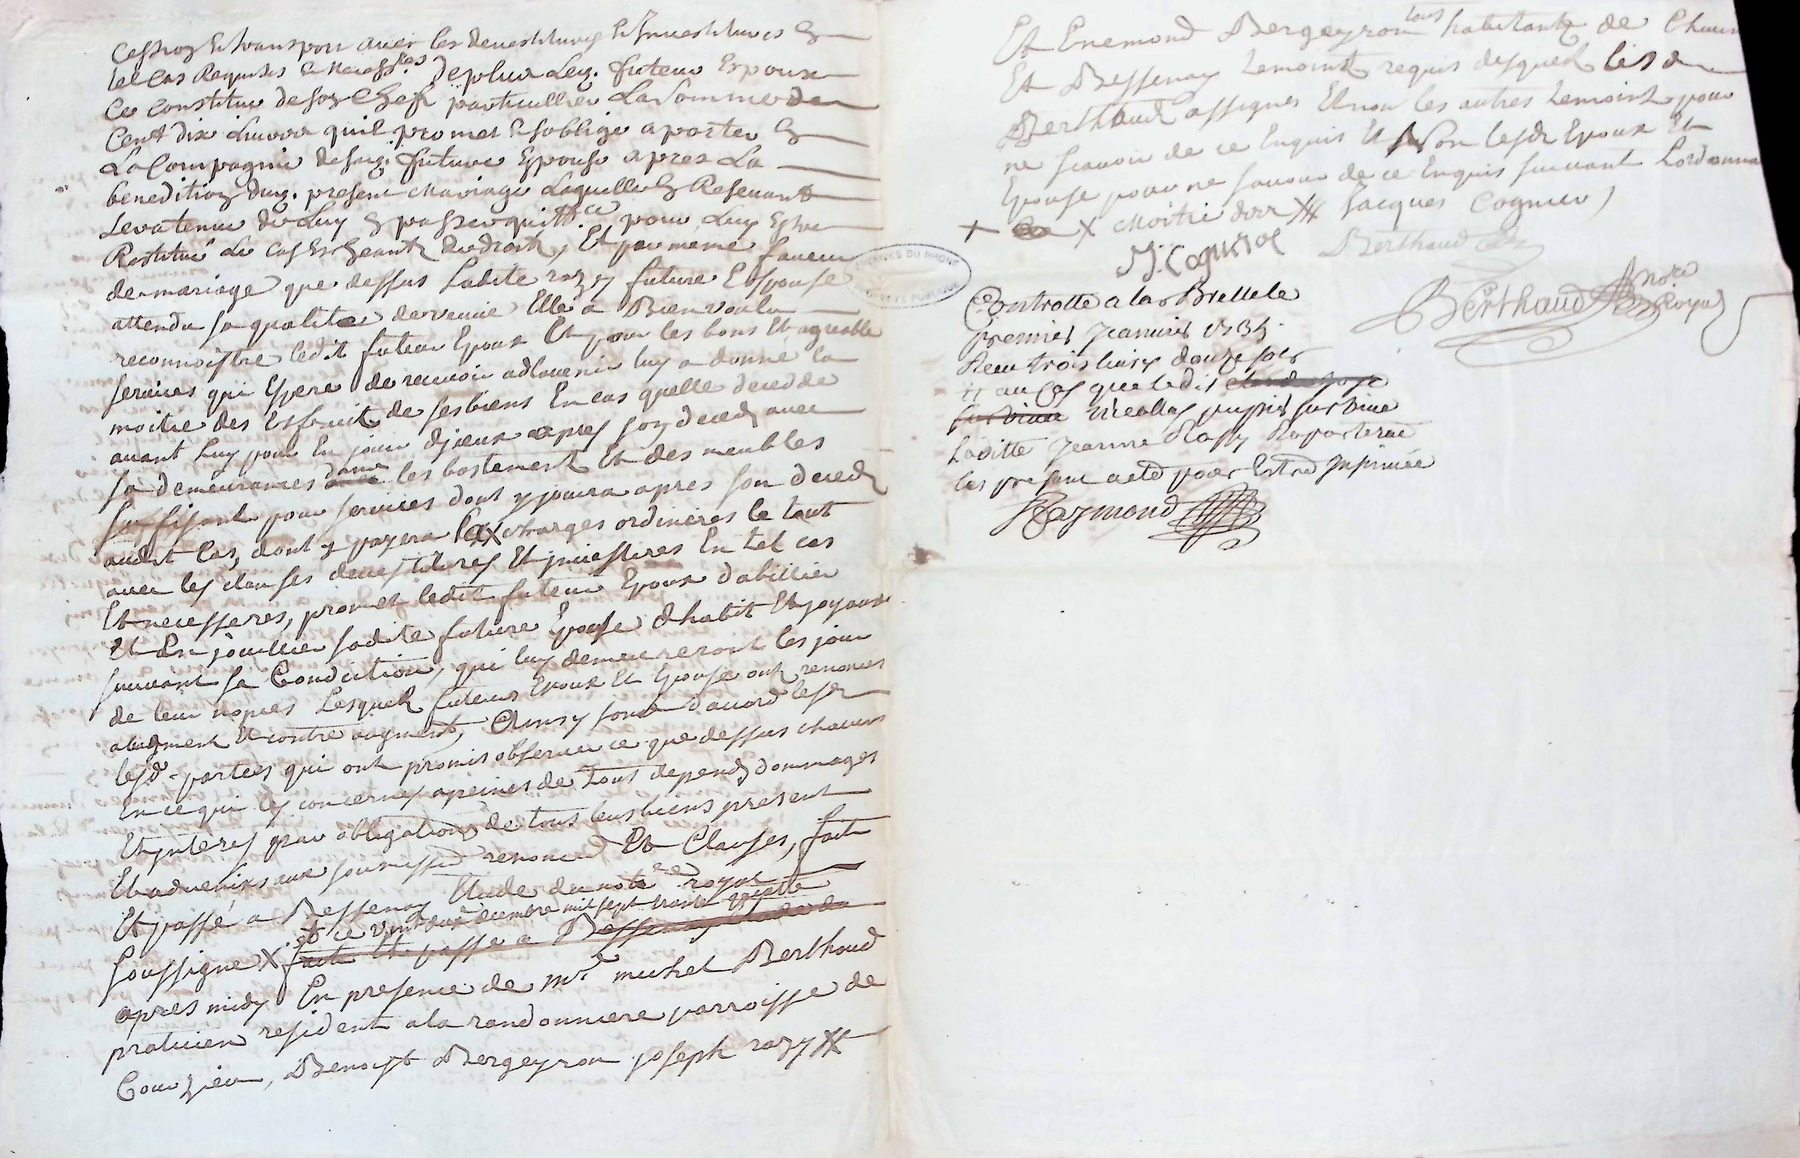 Cession & transport avec les devestitures & Investitures En
tel Cas Requises & necess.res De plus Led. futeur Epoux
Ce Constitue de son Chef particullier La Somme de
Cent dix Livres quil promet & soblige aporter En
La Compagnie de sad. future Epouse apres La
benediction dud. present Mariage Laquelle En Resevant
Sera tenue de Luy En passer quitt.ce pour Luy Estre
Restitué Le Cas Escheant de droit, Et par meme faveur
de mariage que dessus Ladite razy future Espouse
attendu sa qualité de veuve Elle a Bien voulu
reconnoistre ledit futeur Epoux Et pour les bons Et agreable
services qui Espere de recevoir adlavenir luy a donné la
moitie des Usfruit de ses biens En cas quelle decedde
avant Luy pour En jouir djceux apres son deced avec
sa demeurances dans les bastiment Et des meubles
suffisant pour services dont y jouira apres son deced
audit Cas, dont y payera les X charges ordineres le tout
avec les clauses devestitures Et jnvestitures En tel cas
Et necesseres, promet ledit futeur Epoux dabillier
Et En joüillier sadite future Epouse dhabit Et joyaux
suivant sa Condition, qui luy demeureront les jour
de leur nopces Lesquels futeurs Epoux Et Epouse ont renoncés
alaugment Et contre augment, Ainsy sont daccord lesd.
lesd. parties qui ont promis observer ce que dessus chacuns
En ce qui les concernes apeines de tous depends dommages
Et jnteres par obligations de tous leurs biens present
Et advenirs aux soumissions renonce.n Et Clauses, fait
Et passé a Bessenay Etude du notre royal
soussigné X Et ce vingt deux decembre mil sept trente
fait Et passé a Bessenay Etude du
apres midy En presence de mr. michel Berthaud
praticien resident a la randonniere parroisse de
Courzieu, Benoist Bergeyron joseph razy
Et Enemond Bergeyron tous habitants de
Et Bessenay temoins requis desquels led.
Berthaud assignés Et non les autres temoins pour
ne scavoir de ce Enquis Et Non lesd. Epoux Et
Epouse pour ne scavoir de ce Enquis suivant Lordonna
+ X Moitié Jacques Cognieu
J. Cogniol
Berthaud
Berthaud Nore Royal
Controlle a la Brelle le
premier Jeanvier 1735
Receu trois livres douze sols
au Cas que ledit
Nicollas survive
Laditte Jeanne Rasy Raporterat
les present acte pour Estre Insinuée
Raymond
ARCHIVES DU RHONE